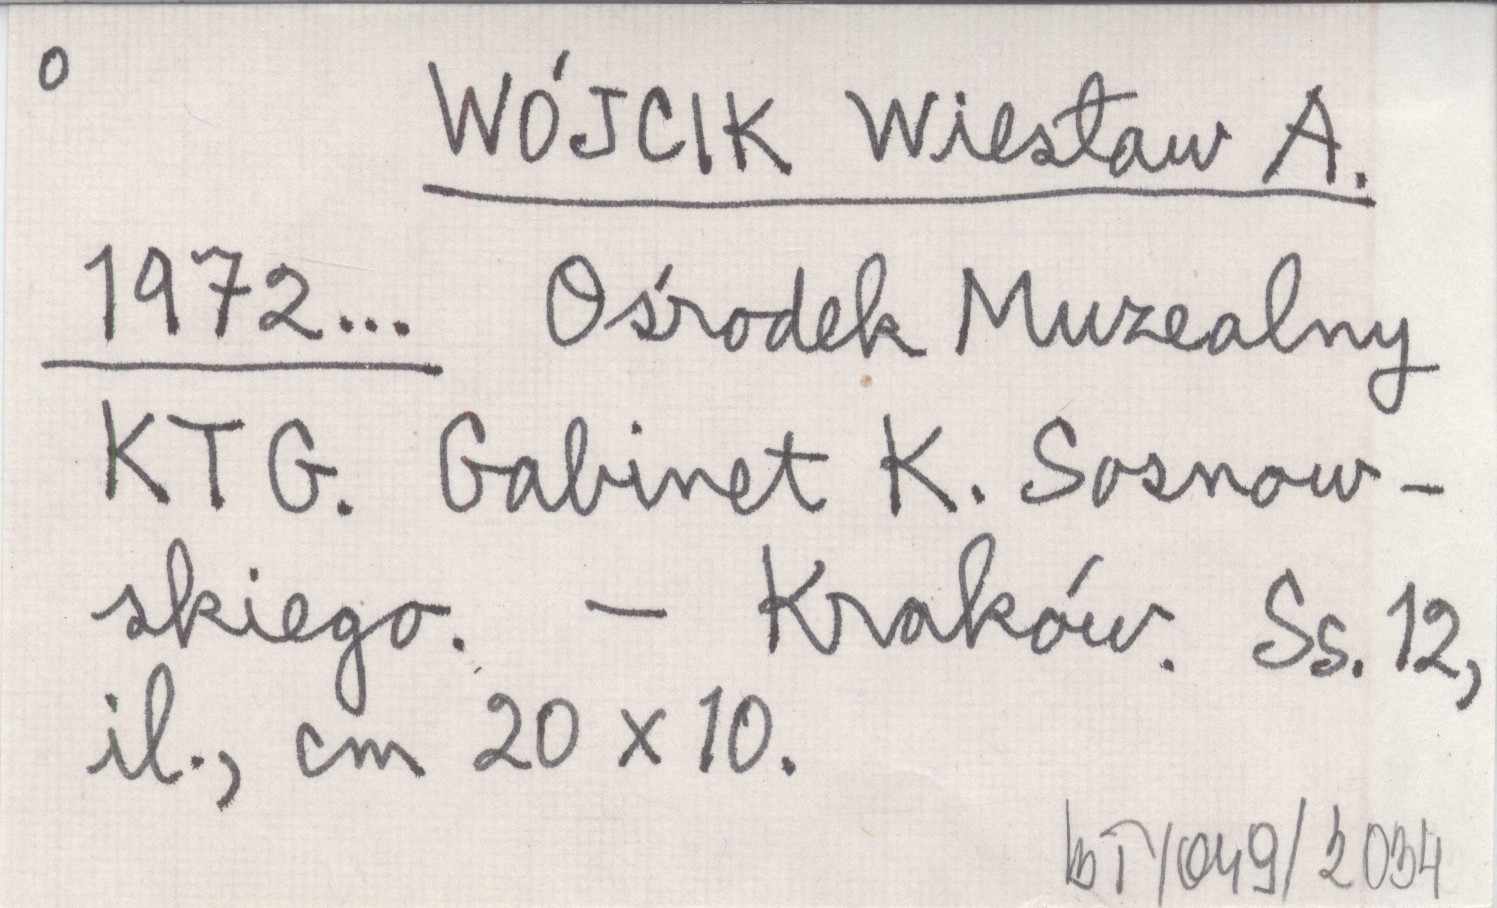 o
WÓJCIK Wiesław A.
1972... Ośrodek Muzealny
KTG. Gabinet K. Sosnow-
skiego. – Kraków. Ss. 12,
il., cm 20 x 10.
bT/049/2034